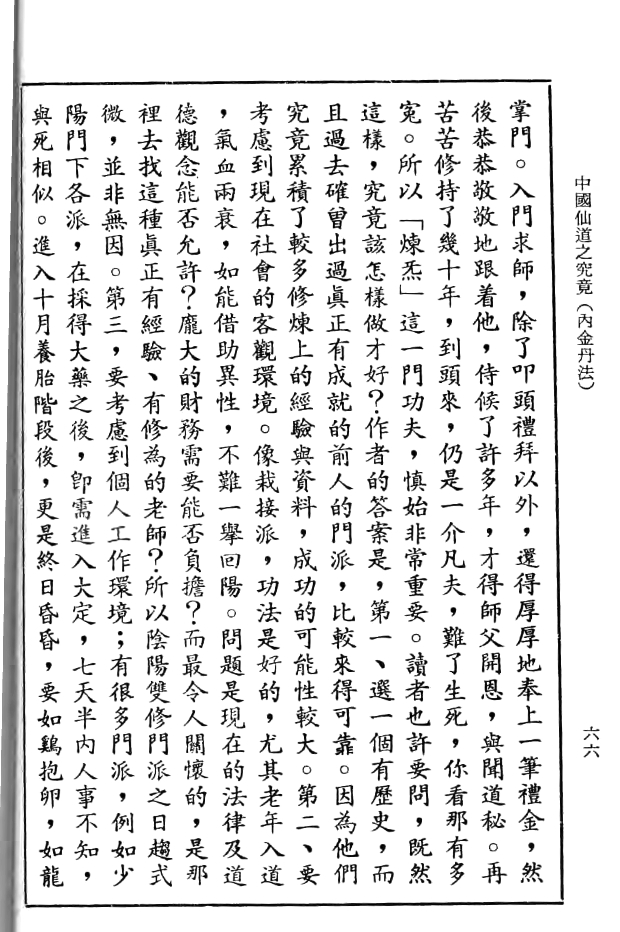 中國仙道之究竟（內金丹法）
六六
掌門。入門求師，除了叩頭禮拜以外，還得厚厚地奉上一筆禮金，然
後恭恭敬敬地跟着他，侍候了許多年，才得師父開恩，與聞道秘。再
苦苦修持了幾十年，到頭來，仍是一介凡夫，難了生死，你看那有多
寃。所以「煉炁」這一門功夫，慎始非常重要。讀者也許要問，既然
這樣，究竟該怎樣做才好？作者的答案是，第一、選一個有歷史，而
且過去確曾出過眞正有成就的前人的門派，比較來得可靠。因為他們
究竟累積了較多修煉上的經驗與資料，成功的可能性較大。第二、要
考慮到現在社會的客觀環境。像栽接派，功法是好的，尤其老年入道
，氣血兩衰，如能借助異性，不難一舉回陽。問題是現在的法律及道
德觀念能否允許？龐大的財務需要能否負擔？而最令人關懷的，是那
裡去找這種眞正有經驗、有修為的老師？所以陰陽雙修門派之日趨式
微，並非無因。第三，要考慮到個人工作環境；有很多門派，例如少
陽門下各派，在採得大藥之後，卽需進入大定，七天半內人事不知，
與死相似。進入十月養胎階段後，更是終日昏昏，要如鷄抱卵，如龍